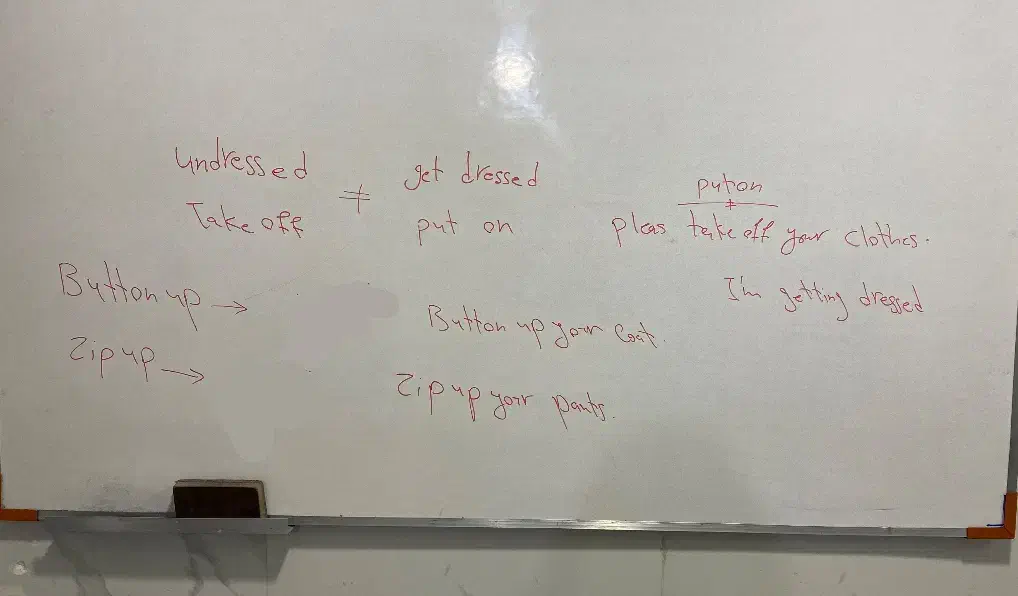 undressed ≠ get dressed
Take off put on
put on
≠
pleas take off your clothes.
I'm getting dressed
Button up → Button up your coat.
Zip up → Zip up your pants.